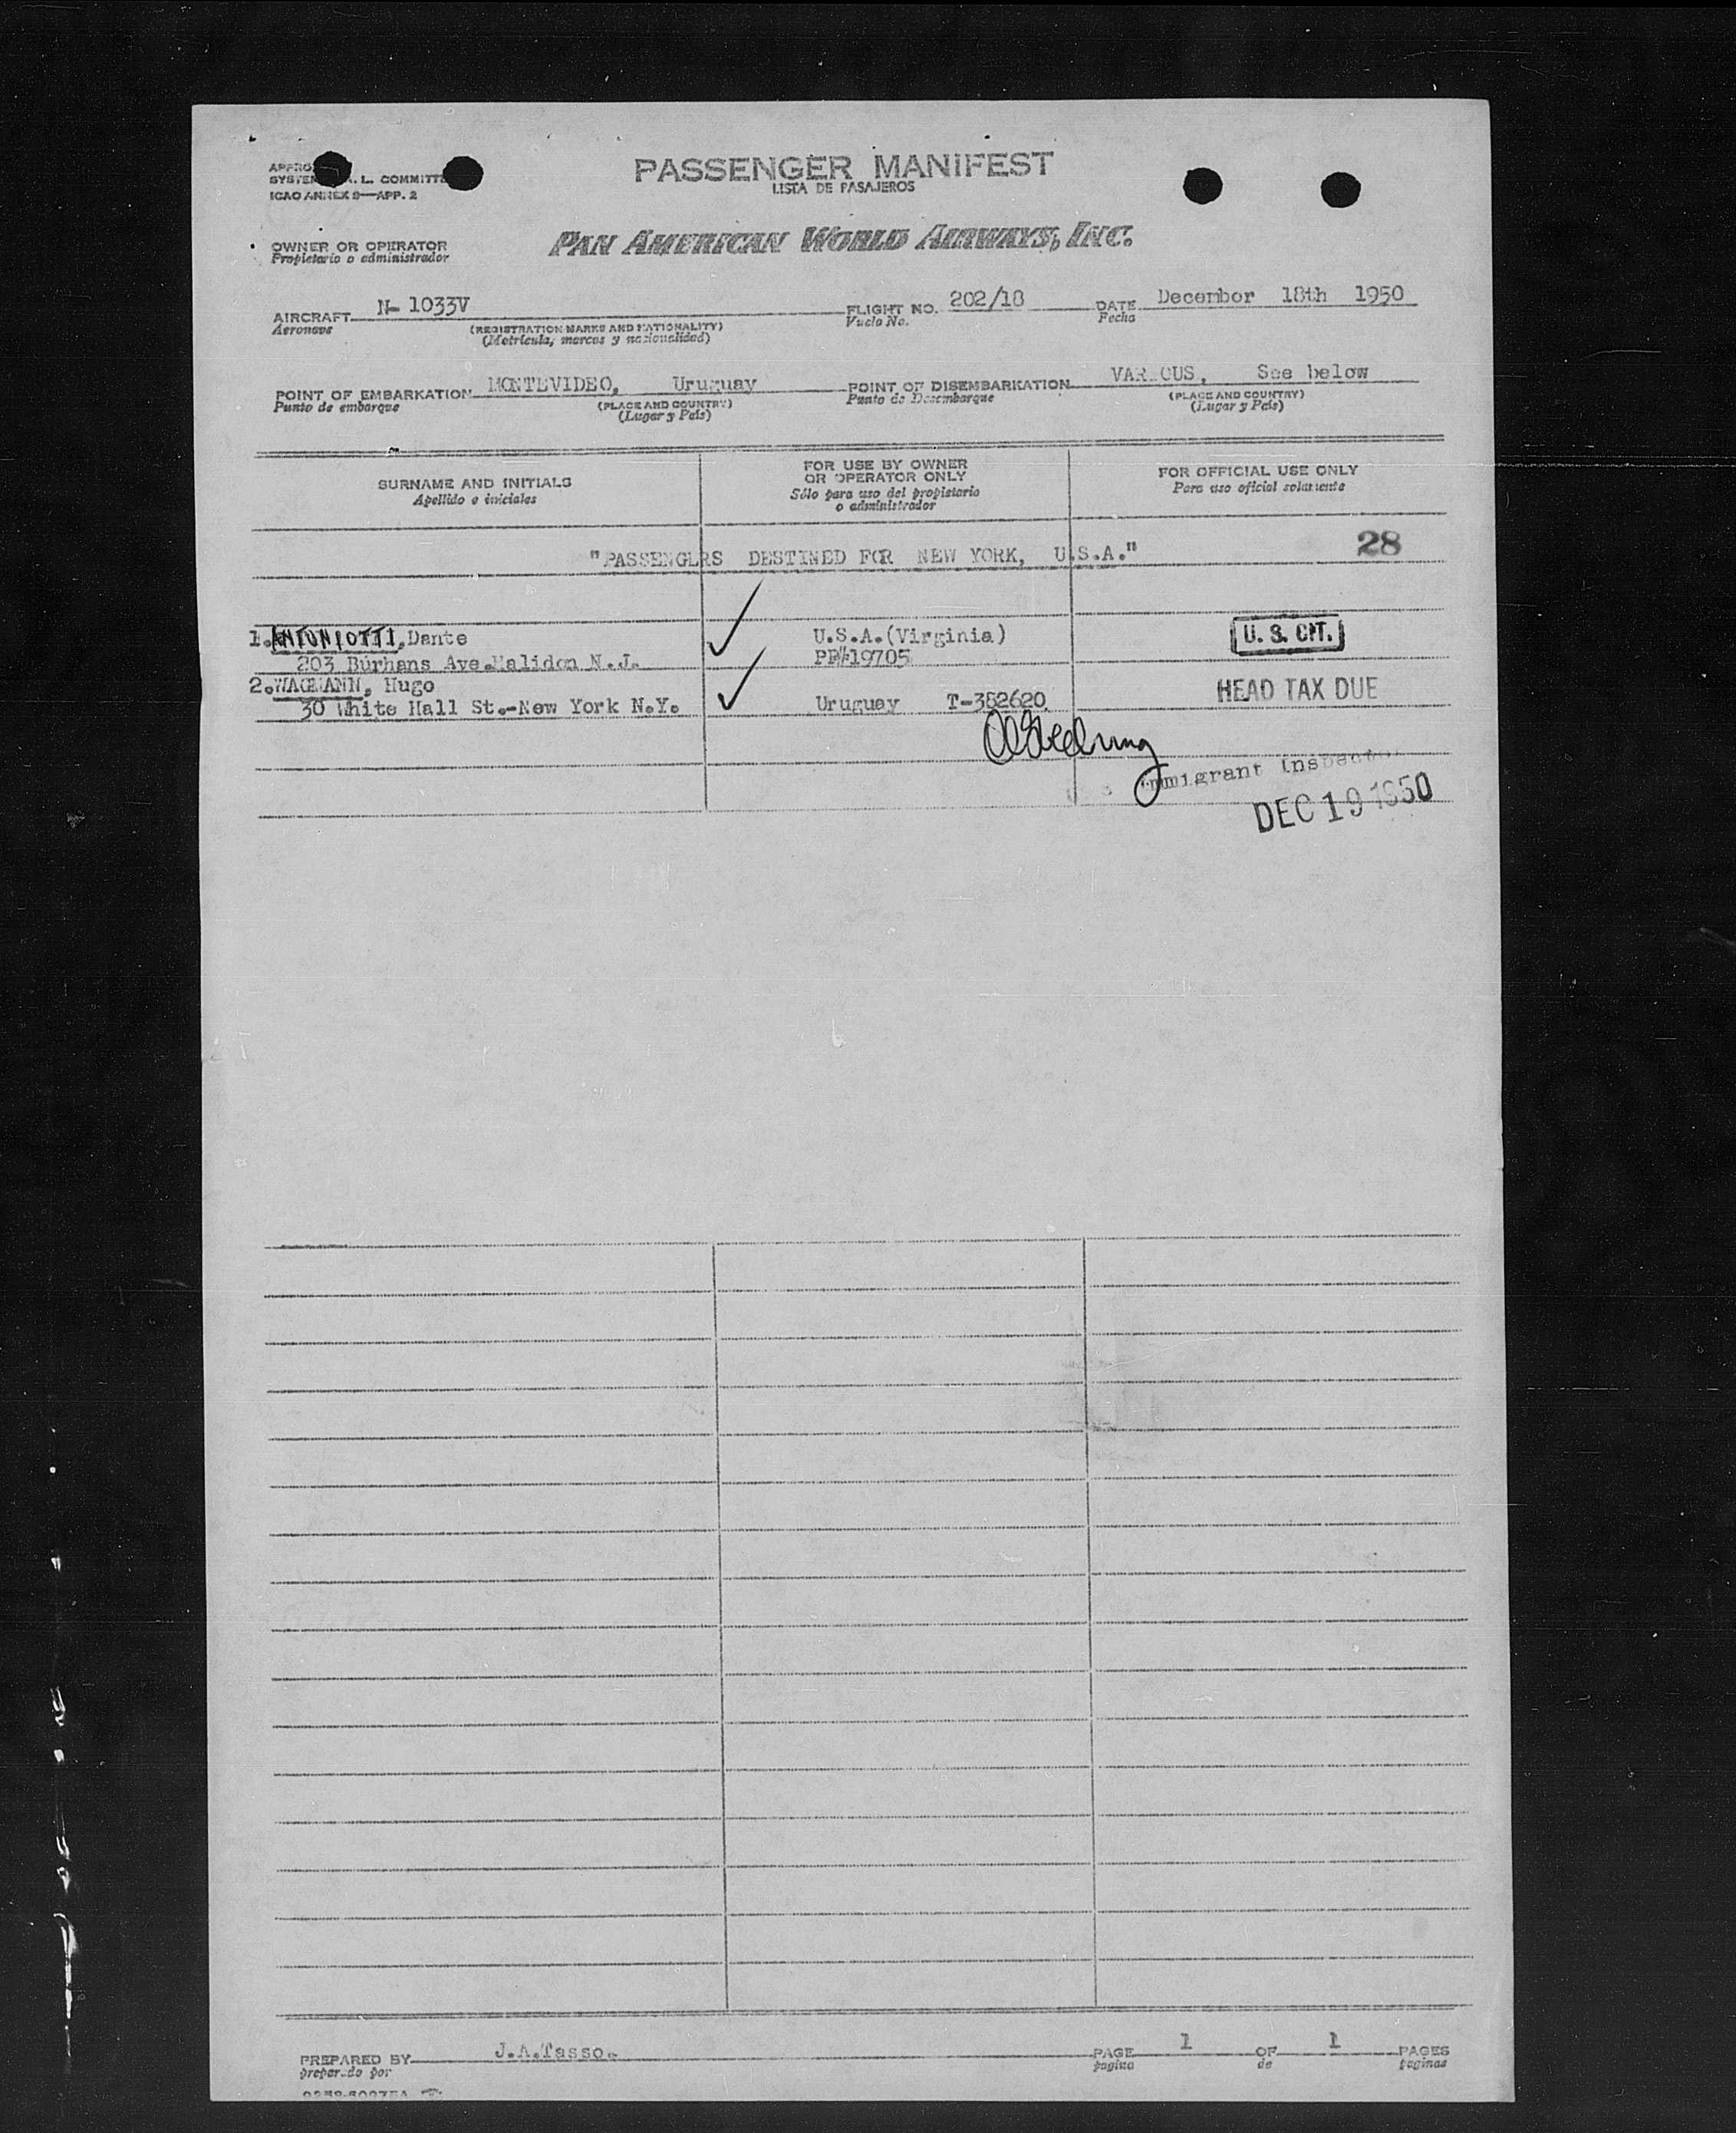 PASSENGER MANIFEST
LISTA DE PASAJEROS
L. COMMITTE
ICAO ANNEX 9—APP. 2
PAN AMERICAN WORLD AIRWAYS, INC.
OWNER OR OPERATOR
Propietario o administrador
AIRCRAFT N- 1033V FLIGHT NO. 202/18 DATE December 18th 1950
Aeronave (REGISTRATION MARKS AND NATIONALITY) Vuelo No. Fecha
(Matrícula, marcas y nacionalidad)
POINT OF EMBARKATION MONTEVIDEO, Uruguay POINT OF DISEMBARKATION VAR OUS, See below
Punto de embarque (PLACE AND COUNTRY) Punto de Desembarque (PLACE AND COUNTRY)
(Lugar y País) (Lugar y País)
SURNAME AND INITIALS FOR USE BY OWNER OR OPERATOR ONLY FOR OFFICIAL USE ONLY
Apellido e iniciales Sólo para uso del propietario o administrador Para uso oficial solamente
28
"PASSENGERS DESTINED FOR NEW YORK, U.S.A."
1. ANTONIOTTI, Dante U.S.A.(Virginia) U. S. CIT.
203 Burhans Ave. N.J. PP#19705
2. Hugo HEAD TAX DUE
30 White Hall St.-New York N.Y. Uruguay T-382620
Immigrant Inspector
DEC 19 1950
PREPARED BY J.A.Tasso.- PAGE 1 OF 1 PAGES
preparado por pagina de paginas